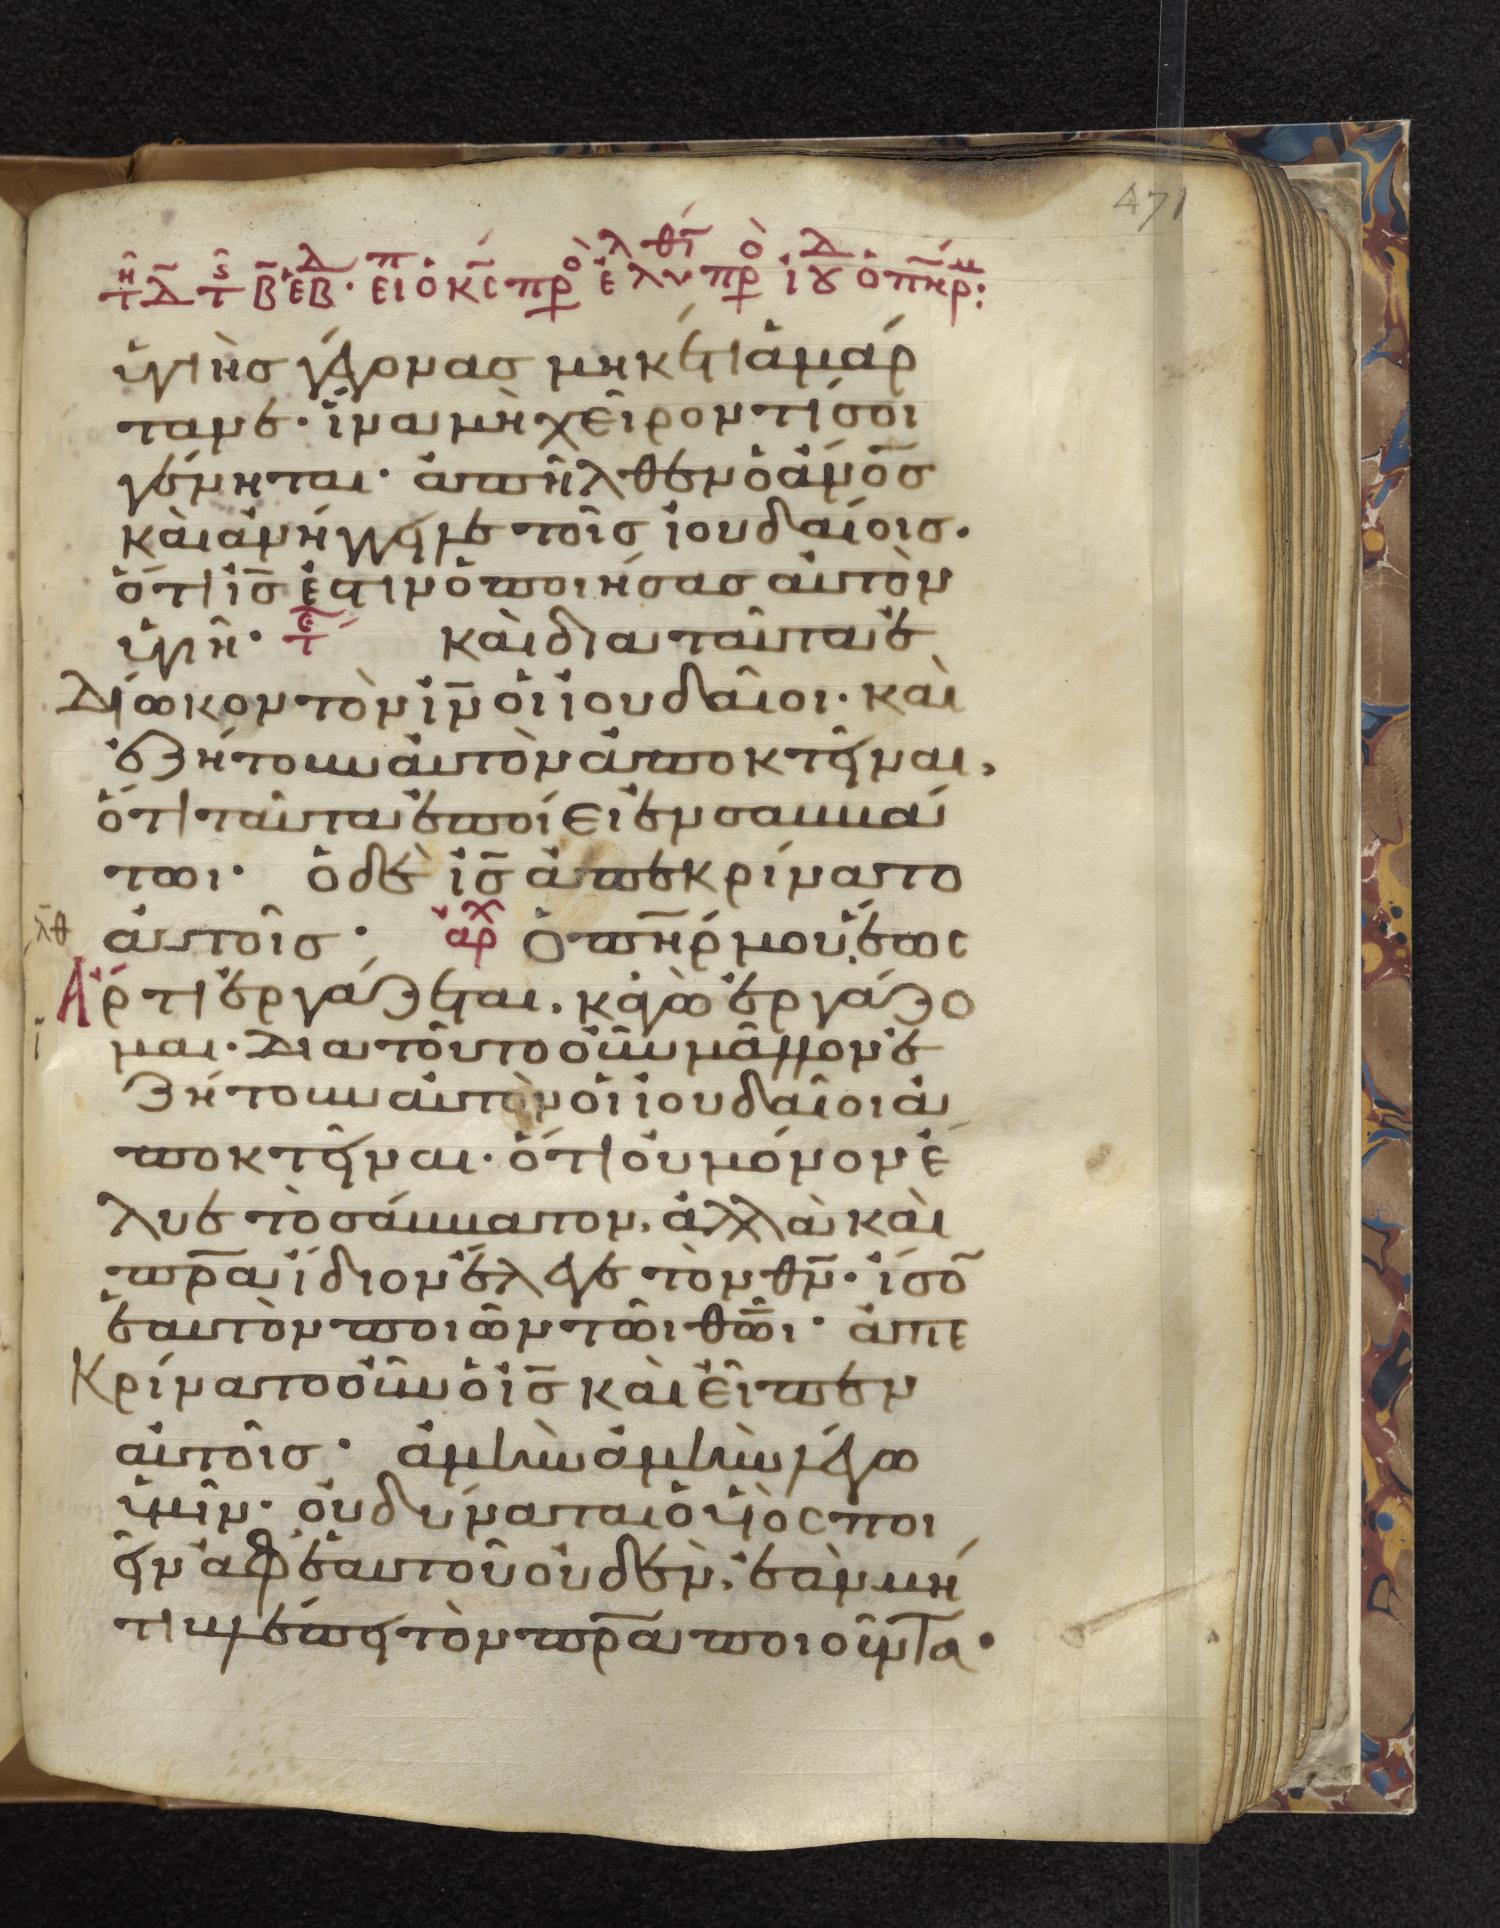 471
τῇ δ̄ τ ϛ̄ β̄ ἑβδ. εἶπ ὁ κ̄ς πρ ὁ ἐλθ λυ πρ ὁ ἰουδ ὁ πη̄ρ μ:
ὑγιὴσ γέγονασ μηκέτι ἁμάρ
τανε· ἵνα μὴ χεῖρον τί σοι
γένηται· ἀπῆλθεν ὁ ἄνο̄σ
καὶ ἀνήγγειλε τοῖσ ἰουδαίοισ.
ὅτι ἰ̄σ ἐστιν ὁ ποιήσασ αὐτὸν
ὑγιῆ· τε καὶ δια ταῦτα ἐ
Δίωκον τὸν ἰ̄ν οἱ ἰουδαῖοι· καὶ
ἐζήτουν αὐτὸν ἀποκτεῖναι,
ὅτι ταῦτα ἐποίει ἐν σαββά
τωι· ὁ δὲ ἰ̄σ ἀπεκρίνατο
λ̄θ αὐτοῖσ· ἀρχ Ὁ πη̄ρ μου ἕωσ
Ἄρτι ἐργάζεται, κἀγὼ ἐργάζο
μαι· Δια τοῦτο οὖν μᾶλλον ἐ
ζήτουν αὐτὸν οἱ ἰουδαῖοι ἀ
ποκτεῖναι· ὅτι οὐ μόνον ἔ
λυε τὸ σάββατον, ἀλλὰ καὶ
πρ̄α ἴδιον ἔλεγε τὸν θ̄ν· ἴσο̄
ἑαυτὸν ποιῶν τῶι θ̄ῶι· ἀπε
Κρίνατο οὖν ὁ ἰ̄σ καὶ εἶπεν
αὐτοῖσ· ἀμὴν ἀμὴν λέγω
ὑμῖν· οὐ δύναται ὁ υἱὸσ ποι
εῖν ἀφ ἑαυτοῦ οὐδὲν, ἐὰν μή
τι βλέπει τὸν πρ̄α ποιοῦντα·